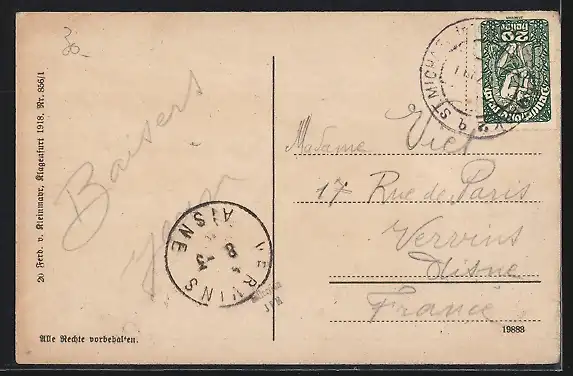 30.-
20 Ferd. v. Kleinmayr, Klagenfurt 1918. Nr. 856/1
Baisers
ST MICHAE
20
Heller
Madame Viet
17 Rue de Paris
Vervins
Aisne
France
VERVINS
AISNE
8
3
19883
Alle Rechte vorbehalten.